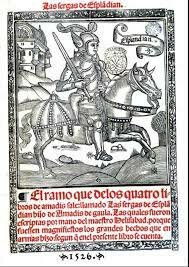 Las sergas de Esplādian.
esplandian
El ramo que delos quatro li
bros de amadis sale: llamado Las sergas de Esplā
dian hijo de Amadis de gaula. Las quales fueron
escriptas por mano del maestro Helisabad, porque
fuessen magnifiestos los grandes hechos que en
armas hizo: segun q̄ enel presente libro se cuenta.
1526.